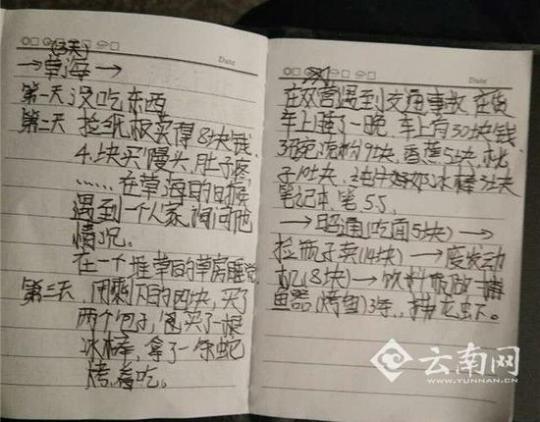 Date
(3天)
→草海→
第一天 没吃东西
第二天 捡纸板买得8块钱
4块买馒头,肚子疼
……在草海的时候
遇到一个人家询问他
情况。
在一个堆草的草房睡觉
第三天,用剩下的四块,买了
两个包子,包买了一根
冰棒,拿了一条蛇
烤着吃。
Date
在双营遇到交通事故 在货
车上睡了一晚,车上有30块钱
3碗凉粉9块,香蕉5块,桃
子10块,冰棒3块
笔记本,笔5.5,
→昭通(吃面5块)→
捡瓶子卖(14块)→废发动
机(8块)→饮料瓶做捕
鱼器(烤鱼)3条,
云南网
WWW.YUNNAN.CN